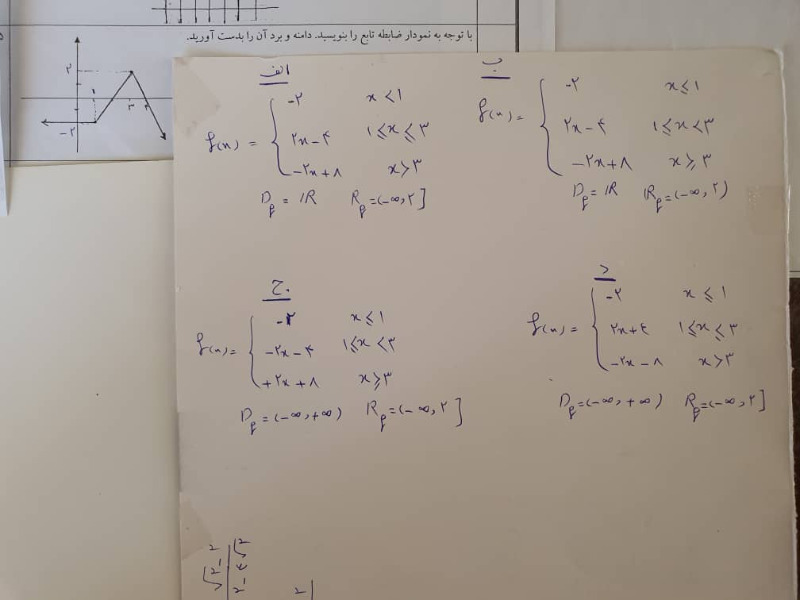 با توجه به نمودار ضابطه تابع را بنویسید. دامنه و برد آن را بدست آورید.
۲
۱
۳ ۴
-۲
الف
f(x) = { -۲ x < ۱
۲x - ۴ ۱ ≤ x ≤ ۳
-۲x + ۸ x > ۳
D_f = IR R_f = (-∞, ۲]
ب
f(x) = { -۲ x ≤ ۱
۲x - ۴ ۱ ≤ x < ۳
-۲x + ۸ x ≥ ۳
D_f = IR R_f = (-∞, ۲)
ج
f(x) = { -۲ x ≤ ۱
-۲x - ۴ ۱ ≤ x < ۳
+۲x + ۸ x ≥ ۳
D_f = (-∞, +∞) R_f = (-∞, ۲]
د
f(x) = { -۲ x ≤ ۱
۲x + ۴ ۱ ≤ x ≤ ۳
-۲x - ۸ x > ۳
D_f = (-∞, +∞) R_f = (-∞, ۲]